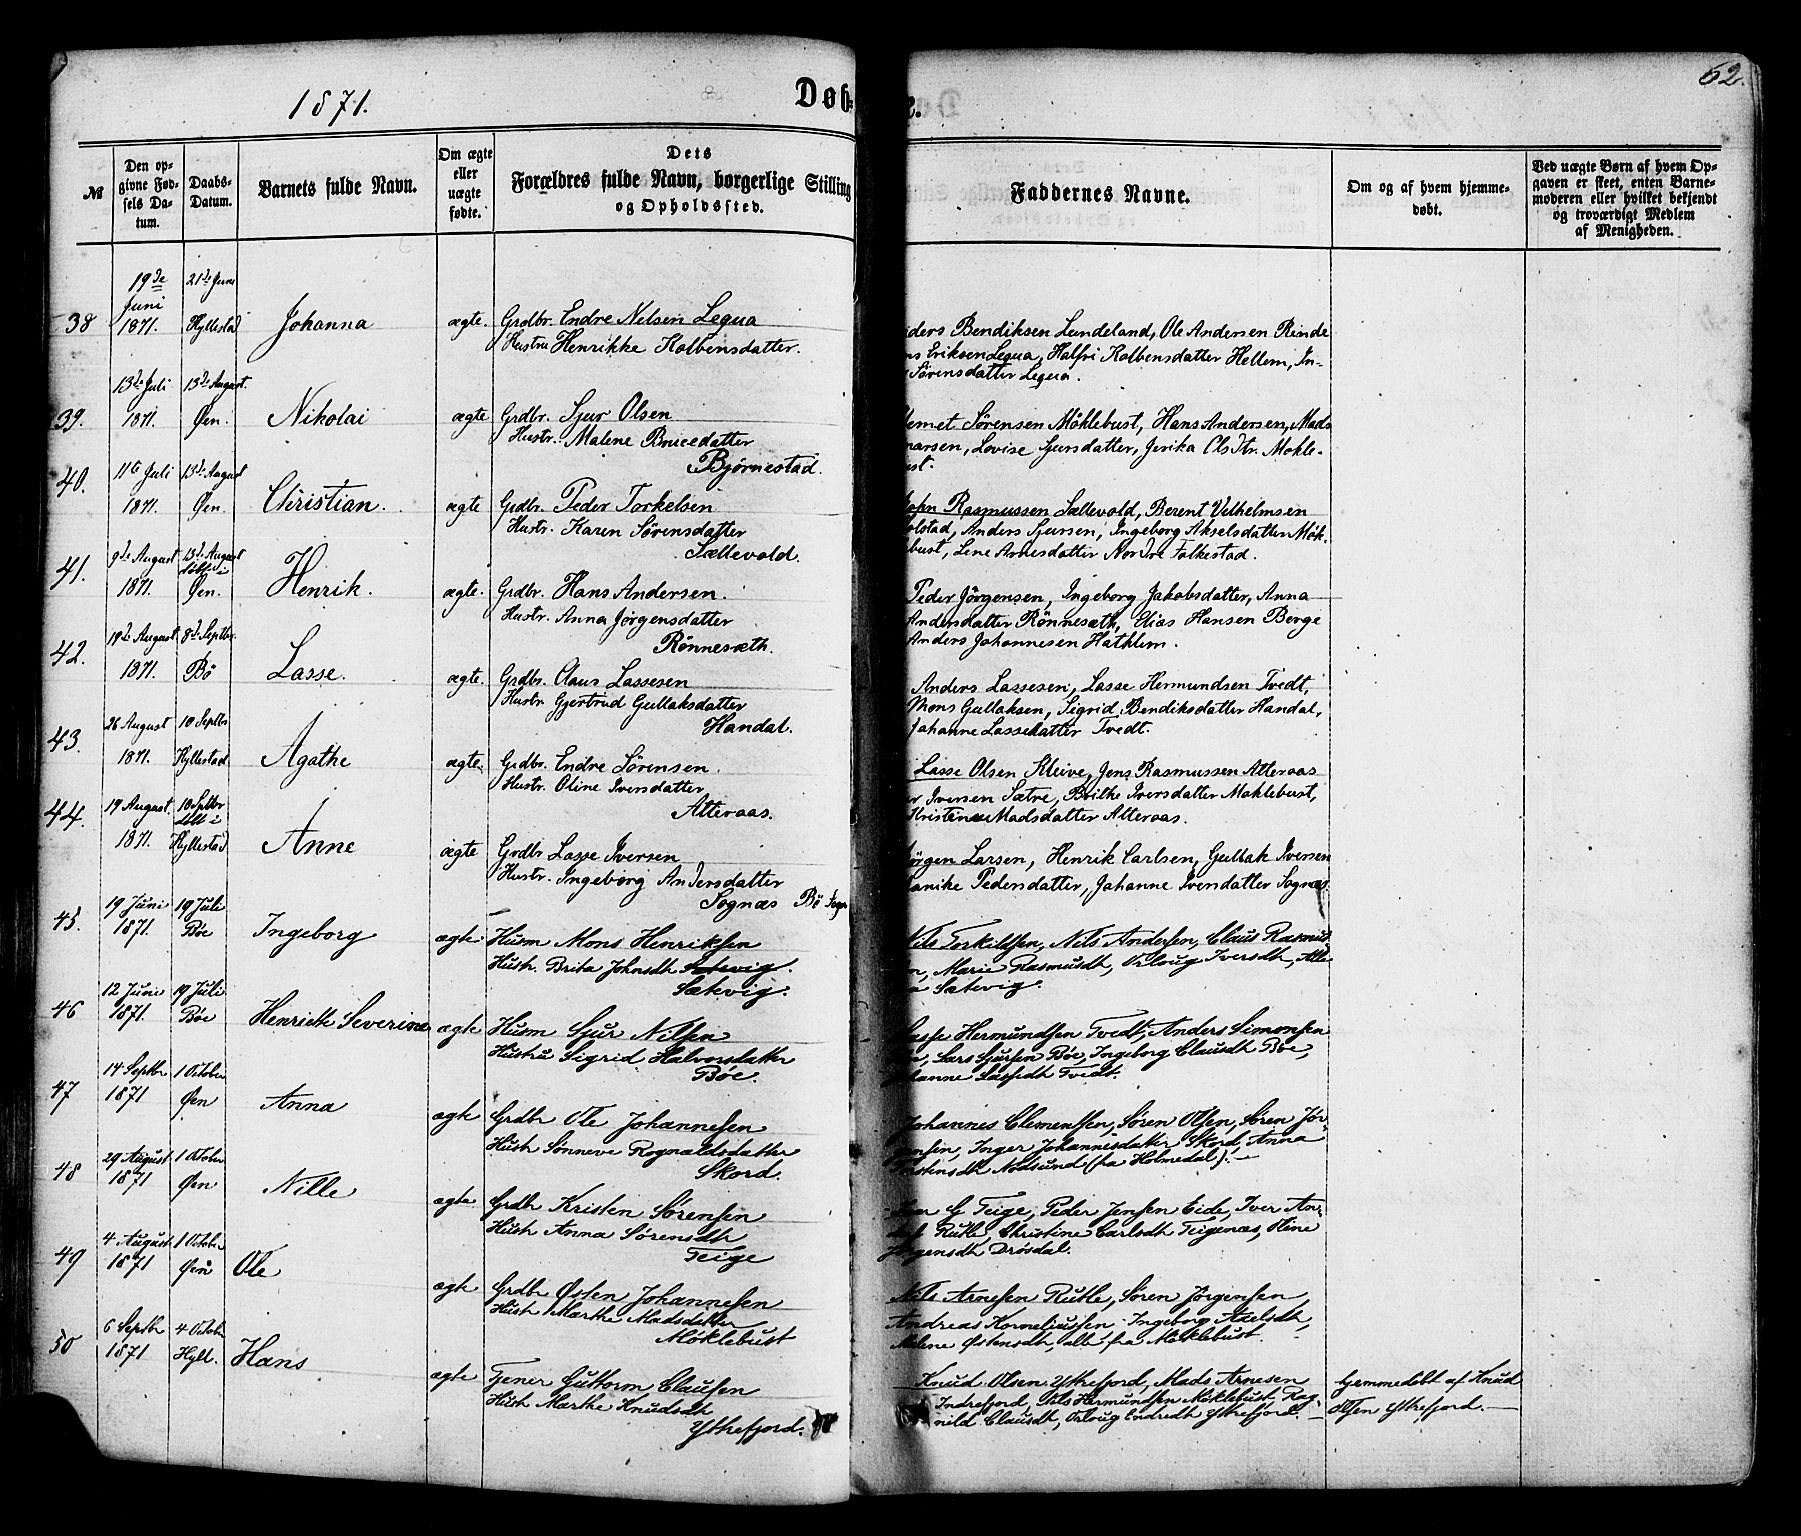 1871.
Døb-
62.
№
Den op-
givne Fød-
sels Da-
tum.
Daabs-
Datum.
Barnets fulde Navn.
Om ægte
eller
uægte
fødte.
Dets
Forældres fulde Navn, borgerlige Stilling
og Opholdssted.
Faddernes Navne.
Om og af hvem hjemme-
døbt.
Ved uægte Børn af hvem Op-
gaven er skeet, enten Barne-
moderen eller hvilket bekjendt
og troværdigt Medlem
af Menigheden.
38
19de
Juni
1871.
21de Juni
Hyllestad
Johanna
ægte.
Grdbr. Endre Nelsen Legua
Hustru Henrikke Kolbensdatter.
Bendiksen Lundeland, Ole Andersen Rinde
Eriksen Legua, Halfri Kolbensdatter Hellem, In-
Sørensdatter Legua.
39.
13de Juli
1871.
13de August.
Øen.
Nikolai
ægte
Grdbr. Sjur Olsen
Hustr. Malene Brucedatter
Bjørnestad.
Sørensen Møklebust, Hans Andersen, Mads
Lovise Sjursdatter, Jerika Olsdtr. Mokle-
ust.
40.
11te Juli
1871.
13de August
Øen.
Christian.
ægte
Grdbr. Peder Torkelsen
Hustr. Karen Sørensdatter
Sællevold.
Rasmussen Sællevold, Berent Velhelmsen
Anders Sjursen, Ingeborg Akselsdatter Møk-
bust, Lene Arnesdatter Nordre Falkestad.
41.
9de August
1871.
13de August
Øen.
Henrik.
ægte.
Grdbr. Hans Andersen.
Hustr. Anna Jørgensdatter
Rønnesæth.
Peder Jørgensen, Ingeborg Jakobsdatter, Anna
Andersdatter Rönnesæth, Elias Hansen Berge
Anders Johannesen Hathlem.
42.
19de August
1871.
8de Septbr.
Bø
Lasse.
ægte.
Grdbr. Claus Lassesen
Hustr. Gjertrud Gullaksdatter
Handal.
Anders Lassesen, Lasse Hermundsen Tvedt,
Mons Gullaksen, Sigrid Bendiksdatter Handal,
Johanne Lassedatter Tvedt.
43.
26 August
1871.
10 Septbr
Hyllestad
Agathe
ægte.
Grdbr. Endre Sørensen.
Hustr. Oline Iversdatter
Atteraas.
Lasse Olsen Kleive, Jens Rasmussen Atteraas
Iversen Sætre, Brithe Iversdatter Moklebust,
Kristine Madsdatter Alteraas.
44.
19 August
1871.
10 Sptbr
Hyllestad
Anne
ægte
Grdbr Lasse Iversen
Hustr. Ingeborg Andersdatter
Sognæs Bø Sogn
Jørgen Larsen, Henrik Carlsen, Gullak Iversen
Pedersdatter, Johanne Iversdatter Sognæs.
45.
19 Juni
1871.
19 Juli
Bøe
Ingeborg
ægte
Husm Mons Henriksen
Hustr. Brita Johnsdt
Sætevig.
Nils Torkildsen, Nils Andersen, Claus Rasmus-
n, Marie Rasmusdt, Orloug Iversdt, Alle
Sætevig.
46
12 Juni
1871.
19 Juli
Bøe
Henriette Severine
ægte
Husm Sjur Nilsen
Hustru Sigrid Halvorsdatter
Bøe.
Lasse Hermundsen Tvedt, Anders Simonsen
Bøe, Lars Sjursen Bøe, Ingeborg Clausdt Bøe,
Johanne Lassedt Tvedt.
47
14 Septbr
1871
1 October
Øen
Anna
ægte
Grdbr Ole Johannesen
Hustr Sønneve Rognaldsdatter
Skord.
Johannes Clementsen, Søren Olsen, Søren Jør-
gensen, Inger Johannesdatter Skord, Anna
Nodsund (fra Holmedal).
48
29 August
1871
1 October
Øen
Nille
ægte
Grdbr Kristen Sørensen
Hustr Anna Sørensdt
Teige
G Teige, Peder Jensen Eide, Iver An-
Rutle, Christine Carlsdt Teigenæs, Stine
Jørgensdt Drøsdal.
49
4 August
1871
1 October
Øen
Ole
ægte
Grdbr Østen Johannesen
Hustr Marthe Madsdatter
Møklebust
Nils Arnesen Rutle, Søren Jørgensen
Andreas Korneliussen Ingeborg Axelsdt,
Malene Østensdt, alle fra Møklebust.
50
6 Septbr
1871
4 October
Hyll.
Hans
ægte
Tjener Guttorm Clausen
Hustr Marthe Knudsdt
Ytrefjord.
Knud Olsen Ytrefjord, Mads Arnesen
Indrefjord, Nils Hermundsen Møklebust, Rag-
nild Clausdt, Orloug Endredt Ytrefjord.
hjemmedøbt af Knud
Olsen Ytrefjord.